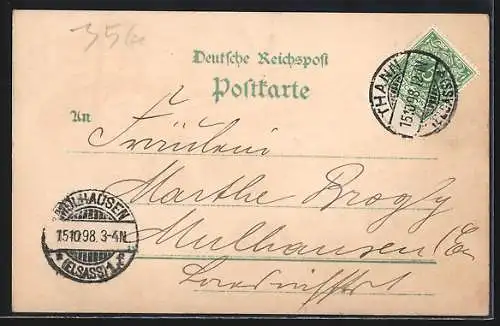 356
Deutsche Reichspost
Postkarte
An
Fräulein
Marthe Brogly
Mulhausen (Els
THANN
15.10.98. 12-1N
(ELSASS)
MÜLHAUSEN
15.10.98. 3-4N
* (ELSASS) 1 *